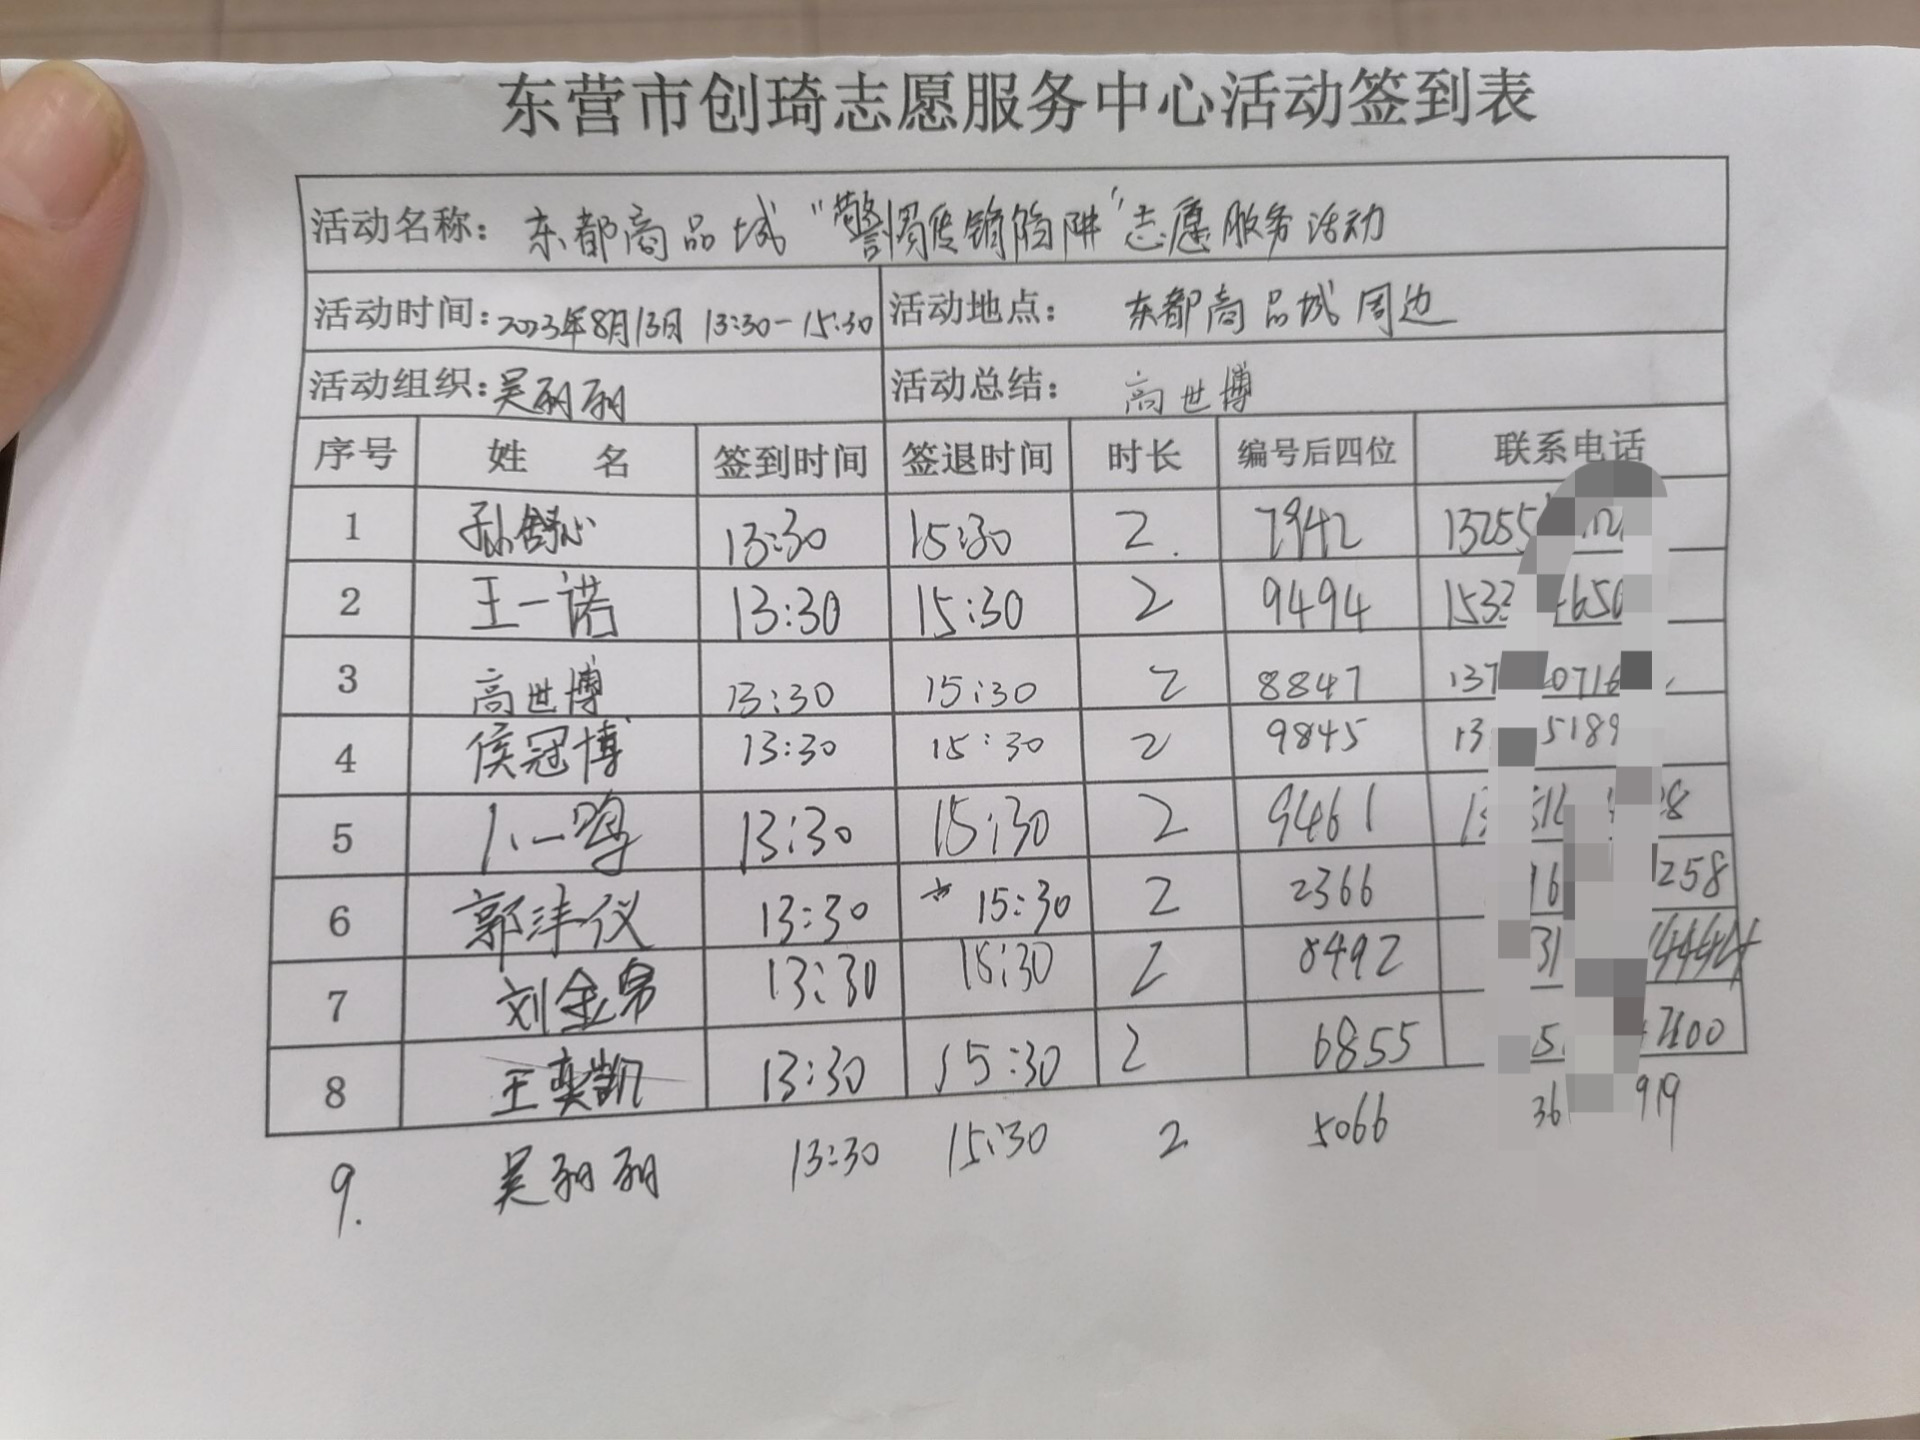 东营市创琦志愿服务中心活动签到表
活动名称：东都商品城“警惕传销陷阱”志愿服务活动
活动时间：2023年8月13日 13:30-15:30 活动地点：东都商品城周边
活动组织：吴丽丽 活动总结：高世博
序号 姓名 签到时间 签退时间 时长 编号后四位 联系电话
1 孙舒心 13:30 15:30 2. 7942 13255
2 王一诺 13:30 15:30 2 9494 1533 650
3 高世博 13:30 15:30 2 8847 137 0716
4 侯冠博 13:30 15:30 2 9845 13 5189
5 一鸣 13:30 15:30 2 9461 8
6 郭沣仪 13:30 15:30 2 2366 16 258
7 刘金帛 13:30 15:30 2 8492 31 4444
8 王奕凯 13:30 15:30 2 6855 5 7100
9. 吴丽丽 13:30 15:30 2 5066 36 919